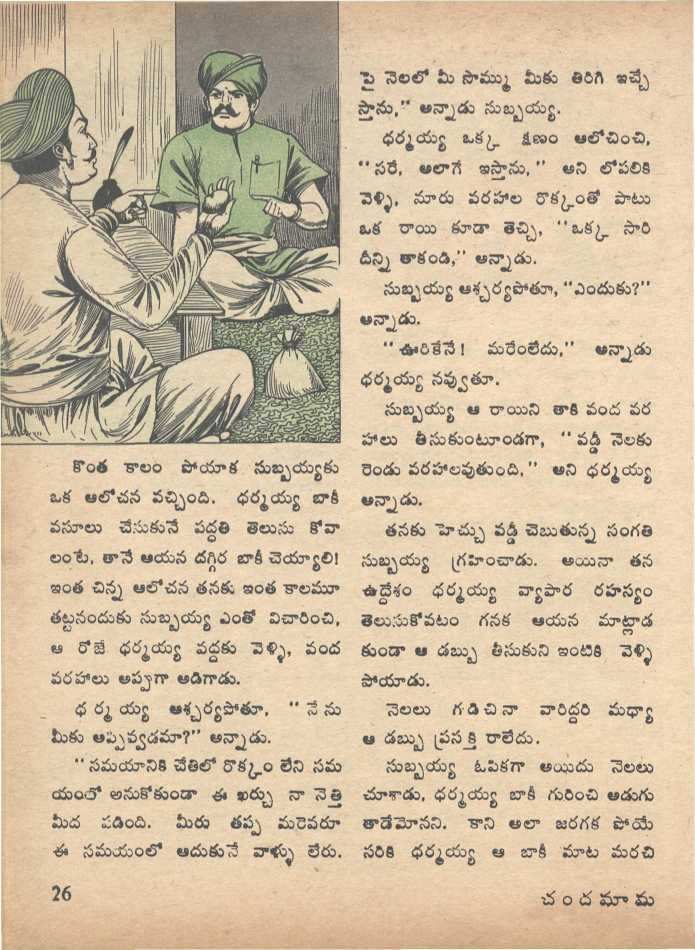 కొంత కాలం పోయాక సుబ్బయ్యకు
ఒక ఆలోచన వచ్చింది. ధర్మయ్య బాకీ
వసూలు చేసుకునే పద్ధతి తెలుసు కోవా
లంటే, తానే ఆయన దగ్గిర బాకీ చెయ్యాలి!
ఇంత చిన్న ఆలోచన తనకు ఇంత కాలమూ
తట్టనందుకు సుబ్బయ్య ఎంతో విచారించి,
ఆ రోజే ధర్మయ్య వద్దకు వెళ్ళి, వంద
వరహాలు అప్పుగా అడిగాడు.
ధర్మయ్య ఆశ్చర్యపోతూ, "నేను
మీకు అప్పివ్వడమా?" అన్నాడు.
"సమయానికి చేతిలో రొక్కం లేని సమ
యంలో అనుకోకుండా ఈ ఖర్చు నా నెత్తి
మీద పడింది. మీరు తప్ప మరెవరూ
ఈ సమయంలో ఆదుకునే వాళ్ళు లేరు.
పై నెలలో మీ సొమ్ము మీకు తిరిగి ఇచ్చే
స్తాను," అన్నాడు సుబ్బయ్య.
ధర్మయ్య ఒక్క క్షణం ఆలోచించి,
"సరే, అలాగే ఇస్తాను," అని లోపలికి
వెళ్ళి, నూరు వరహాల రొక్కంతో పాటు
ఒక రాయి కూడా తెచ్చి, "ఒక్క సారి
దీన్ని తాకండి," అన్నాడు.
సుబ్బయ్య ఆశ్చర్యపోతూ, "ఎందుకు?"
అన్నాడు.
"ఊరికేనే! మరేంలేదు," అన్నాడు
ధర్మయ్య నవ్వుతూ.
సుబ్బయ్య ఆ రాయిని తాకి వంద వర
హాలు తీసుకుంటూండగా, "వడ్డీ నెలకు
రెండు వరహాలవుతుంది," అని ధర్మయ్య
అన్నాడు.
తనకు హెచ్చు వడ్డీ చెబుతున్న సంగతి
సుబ్బయ్య గ్రహించాడు. అయినా తన
ఉద్దేశం ధర్మయ్య వ్యాపార రహస్యం
తెలుసుకోవటం గనక ఆయన మాట్లాడ
కుండా ఆ డబ్బు తీసుకుని ఇంటికి వెళ్ళి
పోయాడు.
నెలలు గడిచినా వారిద్దరి మధ్యా
ఆ డబ్బు ప్రసక్తి రాలేదు.
సుబ్బయ్య ఓపికగా అయిదు నెలలు
చూశాడు, ధర్మయ్య బాకీ గురించి అడుగు
తాడేమోనని. కాని అలా జరగక పోయే
సరికి ధర్మయ్య ఆ బాకీ మాట మరచి
26
చందమామ